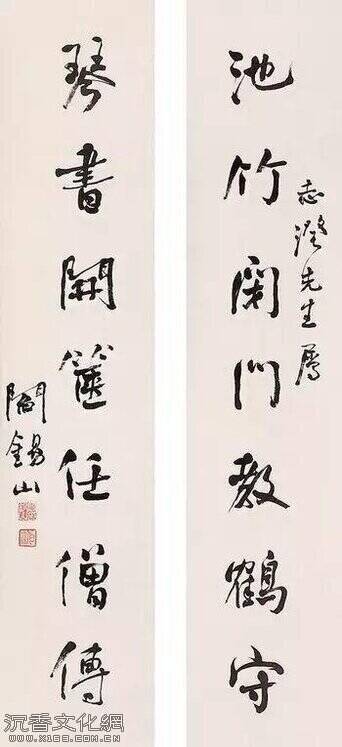 池竹閉門教鶴守
志澂先生屬
琴書開篋任僧傳
閻錫山
沉香文化網